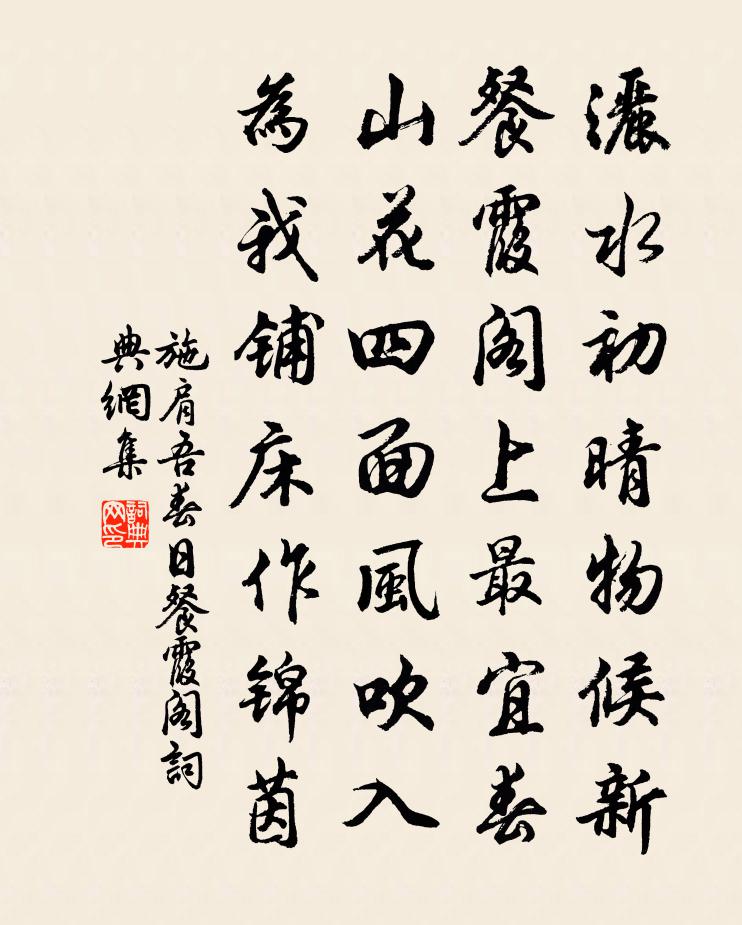 灑水初晴物候新
餐霞閣上最宜春
山花四面風吹入
為我鋪床作錦茵
施肩吾春日餐霞閣詞
典網集
詞典网印